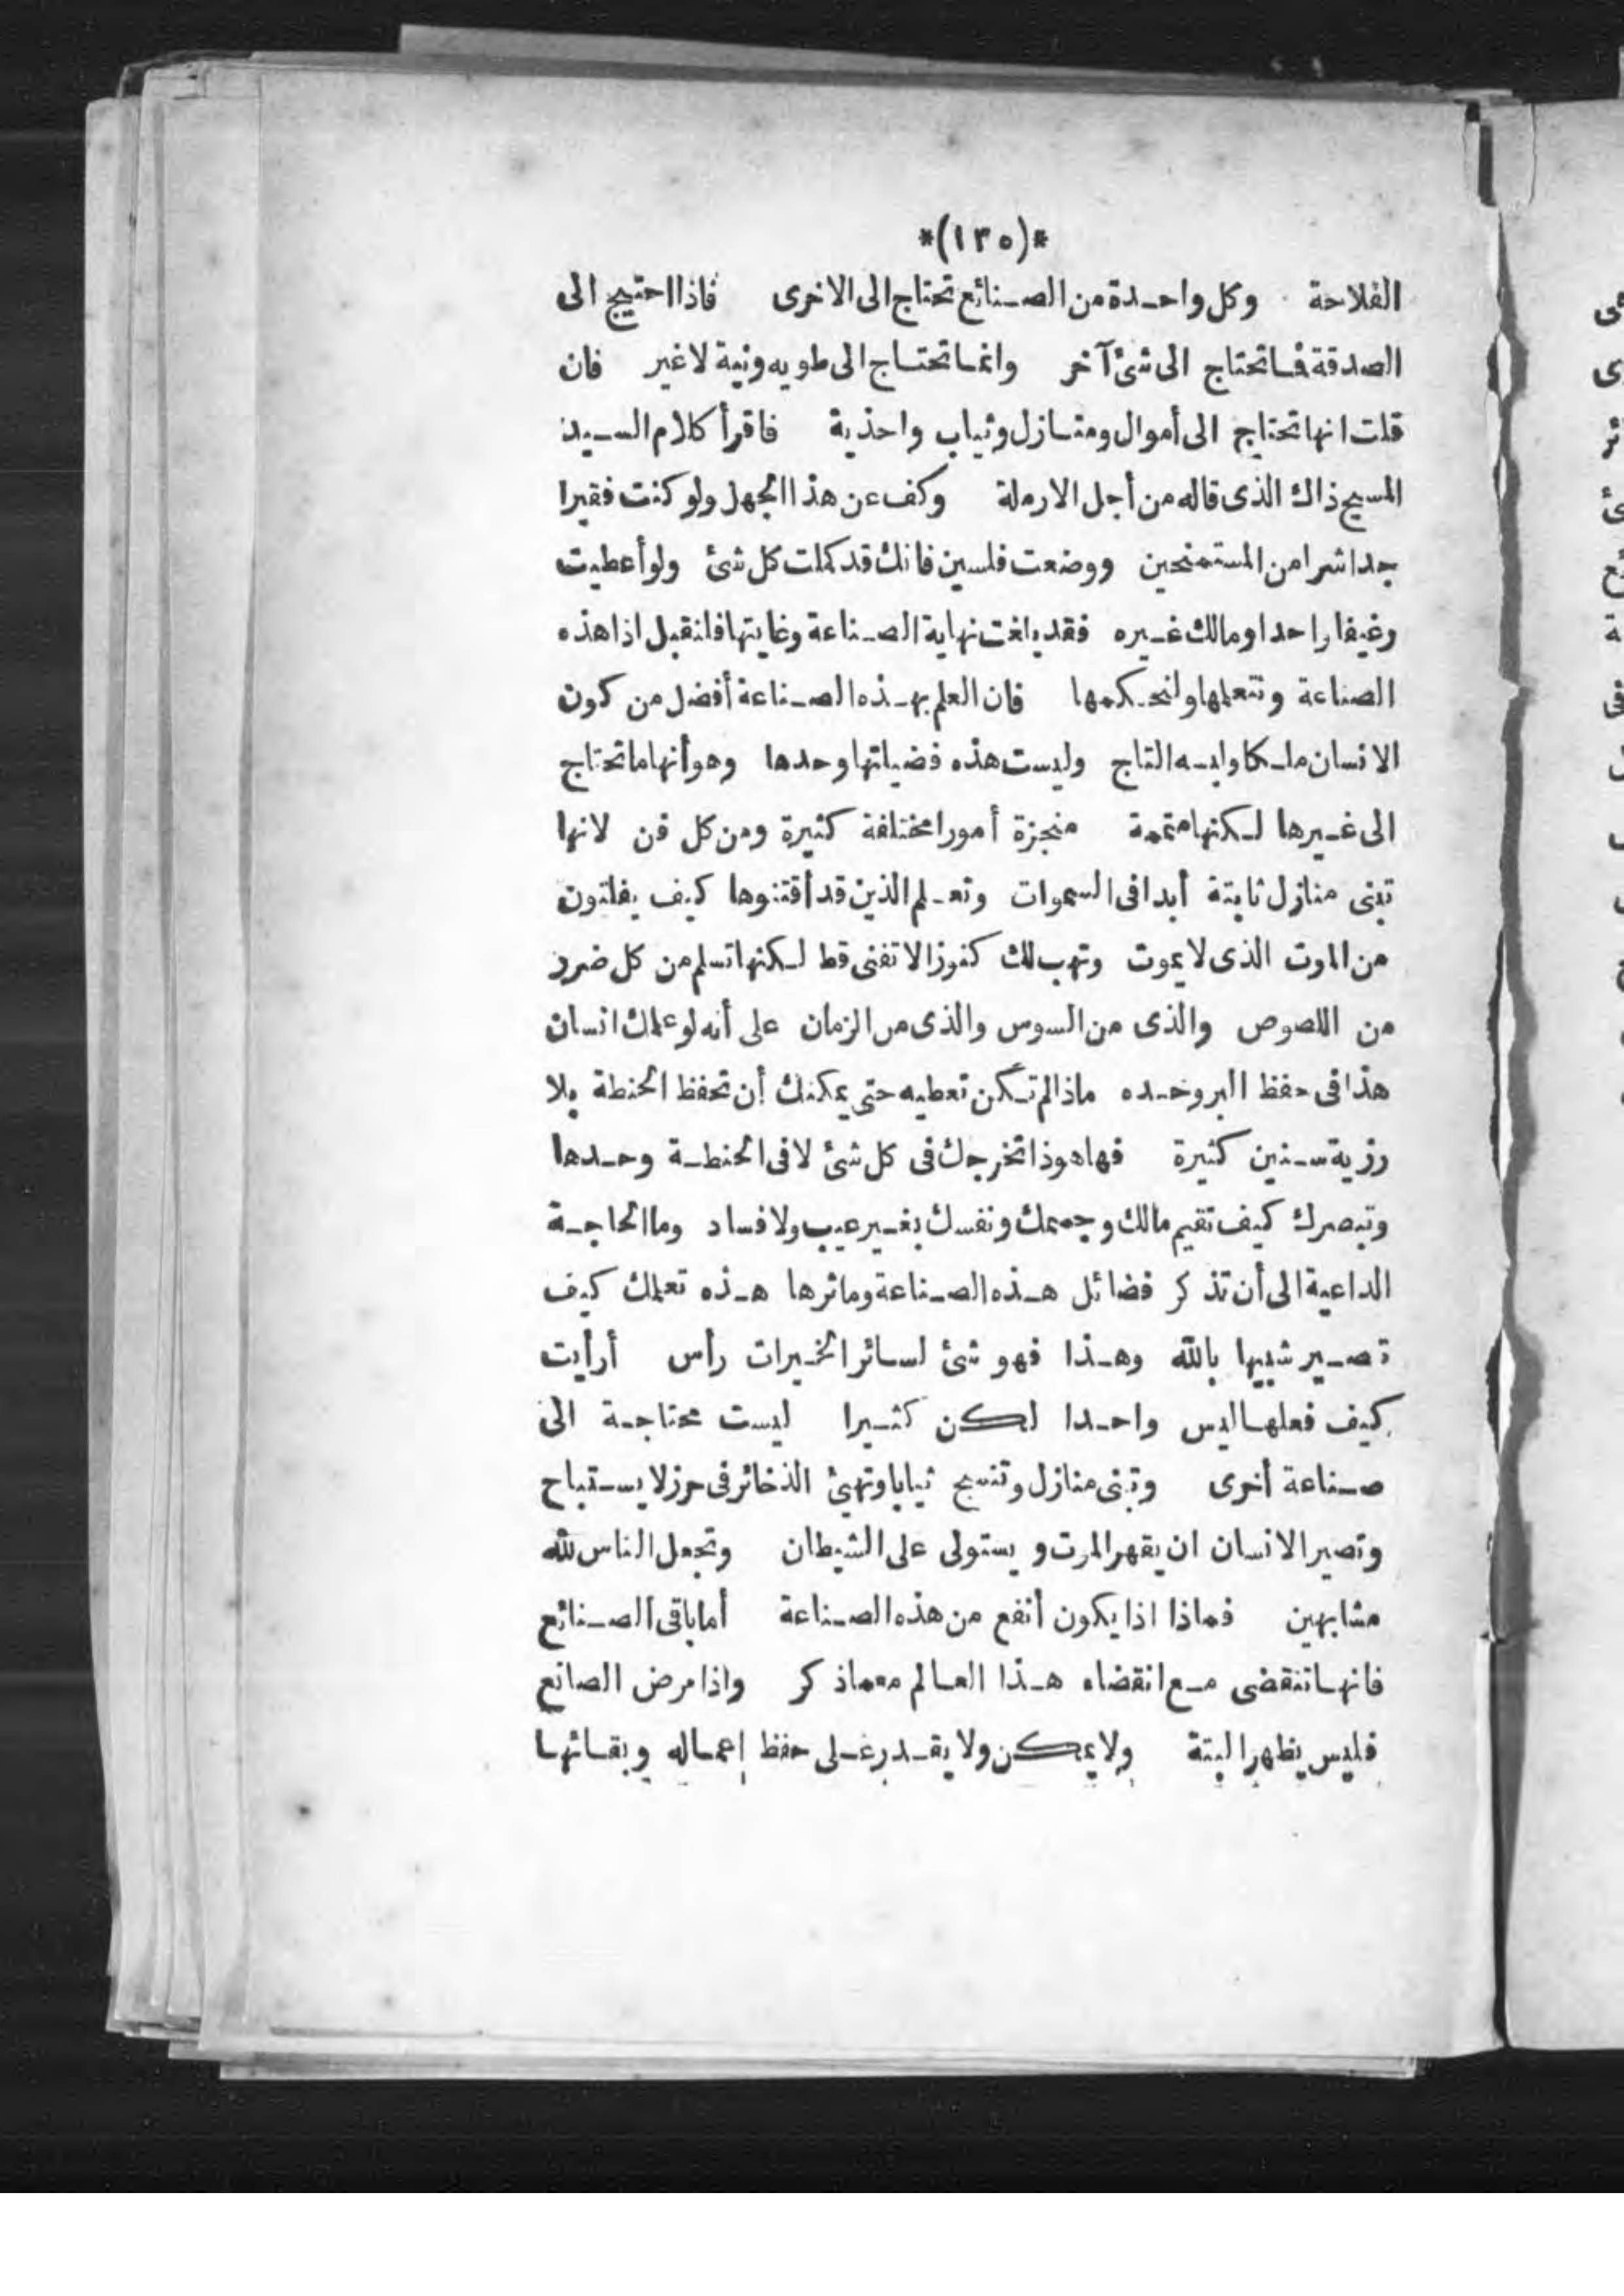 *(١٣٥)*
الفلاحة وكل واحدة من الصنائع تحتاج الى الاخرى فاذا احتيج الى
الصدقة فما تحتاج الى شئ آخر وانما تحتاج الى طويه ونية لا غير فان
قلت انها تحتاج الى أموال ومنازل وثياب واحذية فاقرأ كلام السيد
المسيح ذاك الذى قاله من أجل الارملة وكف عن هذا الجهل ولو كنت فقيرا
جدا شرا من المستمنحين ووضعت فلسين فانك قد كملت كل شئ ولو أعطيت
رغيفا واحدا ومالك غيره فقد بلغت نهاية الصناعة وغايتها فلنقبل اذا هذه
الصناعة ونتعلمها ولنحكمها فان العلم بهذه الصناعة أفضل من كون
الانسان ملكا ولبسه التاج وليست هذه فضيلتها وحدها وهو أنها ما تحتاج
الى غيرها لكنها متممة منجزة أمورا مختلفة كثيرة ومن كل فن لانها
تبنى منازل ثابتة أبدا فى السموات وتعلم الذين قد أقتنوها كيف يفلتون
من الموت الذى لا يموت وتهب لك كنوزا لا تفنى قط لكنها تسلم من كل ضرر
من اللصوص والذى من السوس والذى من الزمان على أنه لو علمك انسان
هذا فى حفظ البر وحده ماذا لم تكن تعطيه حتى يمكنك أن تحفظ الحنطة بلا
رزية سنين كثيرة فها هوذا تخرجك فى كل شئ لا فى الحنطة وحدها
وتبصرك كيف تقيم مالك وجسمك ونفسك بغير عيب ولا فساد وما الحاجة
الداعية الى أن تذكر فضائل هذه الصناعة وماثرها هذه تعلمك كيف
تصير شبيها بالله وهذا فهو شئ لسائر الخيرات رأس أرأيت
كيف فعلها ليس واحدا لكن كثيرا ليست محتاجة الى
صناعة أخرى وتبنى منازل وتنسج ثيابا وتهيئ الذخائر فى حرز لا يستباح
وتصير الانسان ان يقهر الموت و يستولى على الشيطان وتجعل الناس لله
مشابهين فماذا اذا يكون أنفع من هذه الصناعة أما باقى الصنائع
فانها تنقضى مع انقضاء هذا العالم معما ذكر واذا مرض الصانع
فليس يظهر البتة ولا يمكن ولا يقدر على حفظ إعماله وبقائها